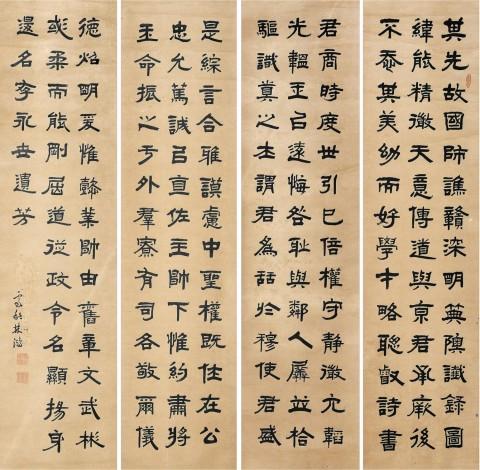 其先故國師譙贛深明箕隩讖錄圖
緯能精微天意傳道與京君承厥後
不忝其美幼而好學才略聰叡詩書
君商時度世引己倍權守靜微冗韜
光韞玉以遠悔咎恥與鄰人羼並拾
驅識真之士謂君為話於穆使君盛
是綜言合雅謨慮中聖權既任在公
忠允篤誠以宣佐主帥下惟約肅將
王命振之于外羣寮有司各敬爾儀
德炤明爰惟懿業帥由舊章文武彬
彧柔而能剛屈道從政令名顯揚身
名永世遺芳